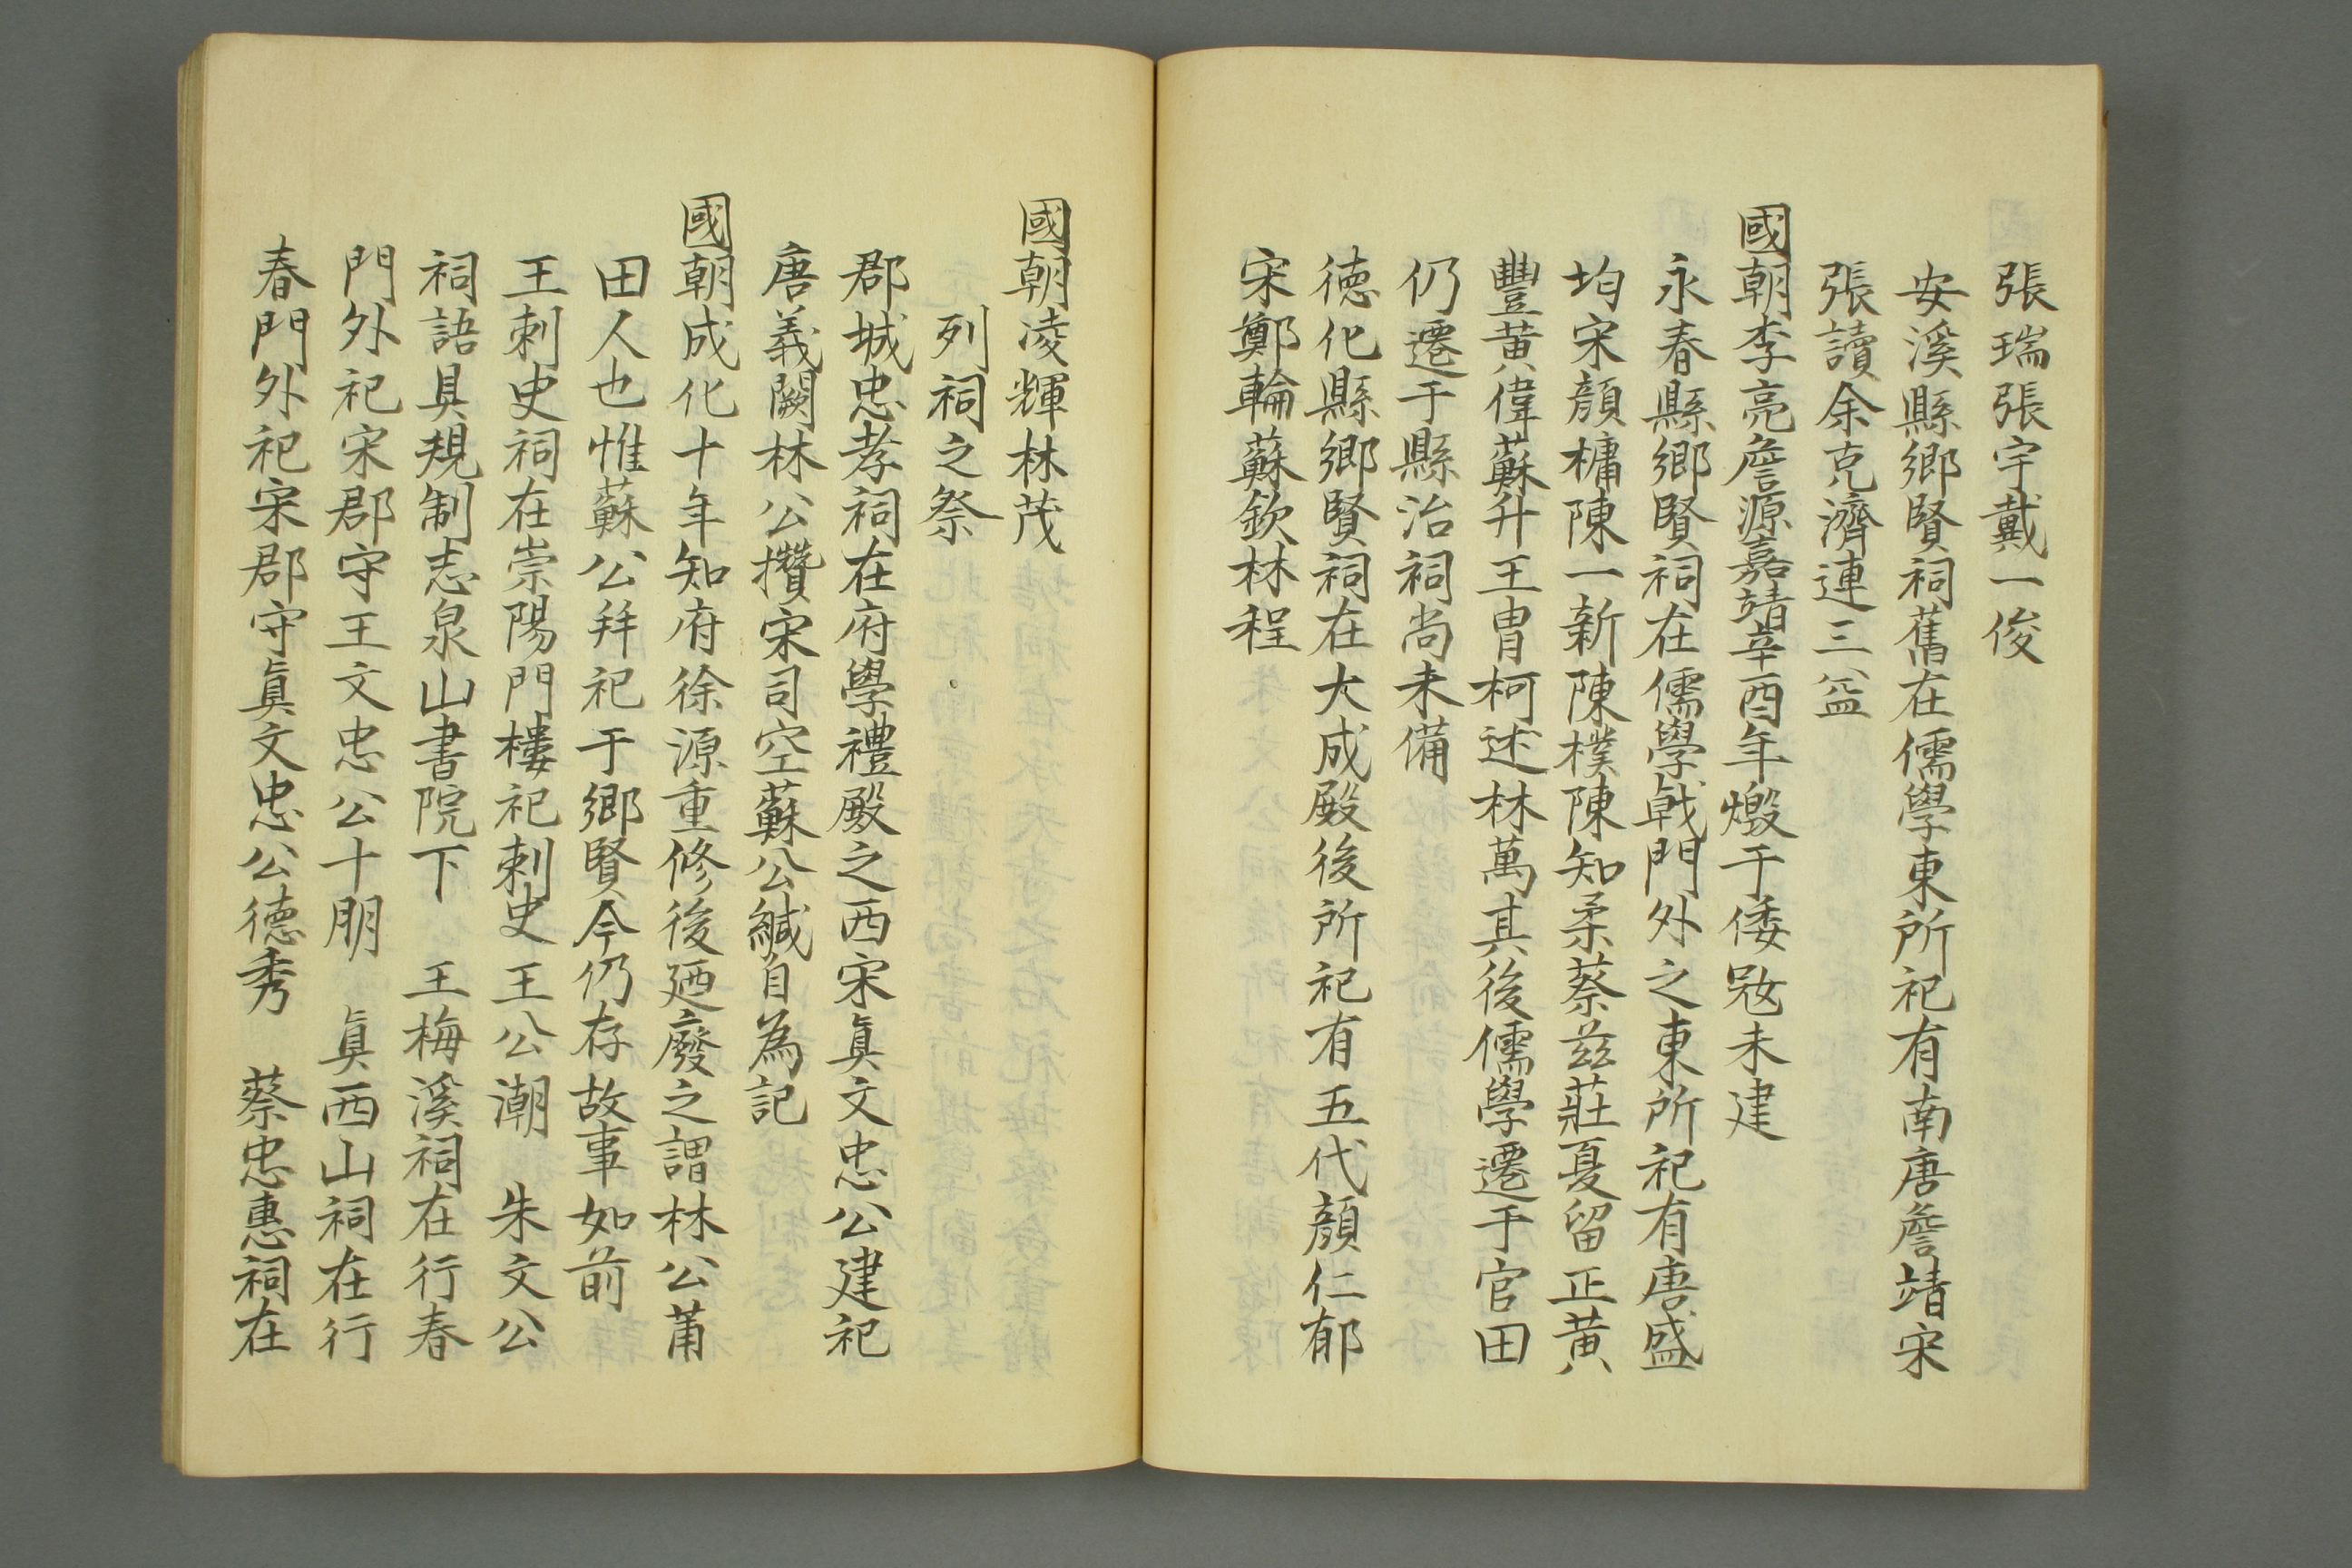 張瑞張宇戴一俊
安溪縣鄉賢祠舊在儒學東所祀有南唐詹靖宋
張讀余克濟連三益
國朝李亮詹源嘉靖辛酉年燬于倭宼未建
永春縣鄉賢祠在儒學戟門外之東所祀有唐盛
均宋顔橚陳一新陳樸陳知柔蔡茲莊夏留正黄
豐黄偉蘇升王冑柯述林萬其後儒學遷于官田
仍遷于縣治祠尚未備
徳化縣鄉賢祠在大成殿後所祀有五代顔仁郁
宋鄭輪蘇欽林程
國朝凌輝林茂
列祠之祭
郡城忠孝祠在府學禮殿之西宋眞文忠公建祀
唐義闕林公攢宋司空蘇公緘自為記
國朝成化十年知府徐源重修後廼廢之謂林公莆
田人也惟蘇公拜祀于鄉賢今仍存故事如前
王刺史祠在崇陽門樓祀刺史王公潮 朱文公
祠語具規制志泉山書院下 王梅溪祠在行春
門外祀宋郡守王文忠公十朋 眞西山祠在行
春門外祀宋郡守眞文忠公德秀 蔡忠惠祠在